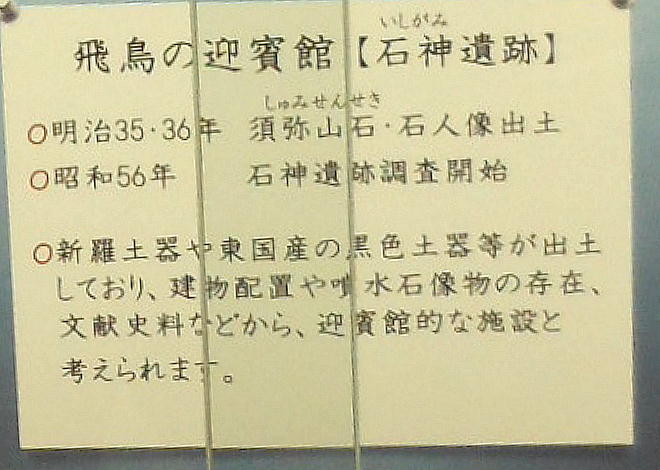 いしがみ
飛鳥の迎賓館【石神遺跡】
しゅみせんせき
○明治35·36年 須弥山石·石人像出土
○昭和56年 石神遺跡調査開始
○新羅土器や東国産の黒色土器等が出土
しており、建物配置や噴水石像物の存在、
文献史料などから、迎賓館的な施設と
考えられます。